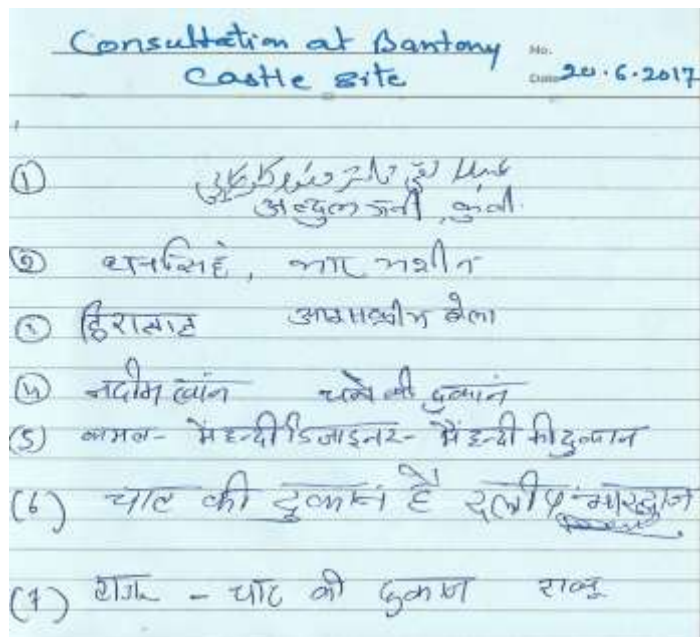 Consultation at Bantony
Castle site
No.
Date 20.6.2017
①
अब्दुल गनी, कुली
② थानसिंह, भार मशीन
③ हिरालाल आइसक्रीम ठेला
④ नदीम खांन चने की दुकान
(5) कमल - मेंहन्दी डिजाइनर - मेंहन्दी की दुकान
(6) चाट की दुकान है दलीप
(7) राजू - चाट की दुकान राजू